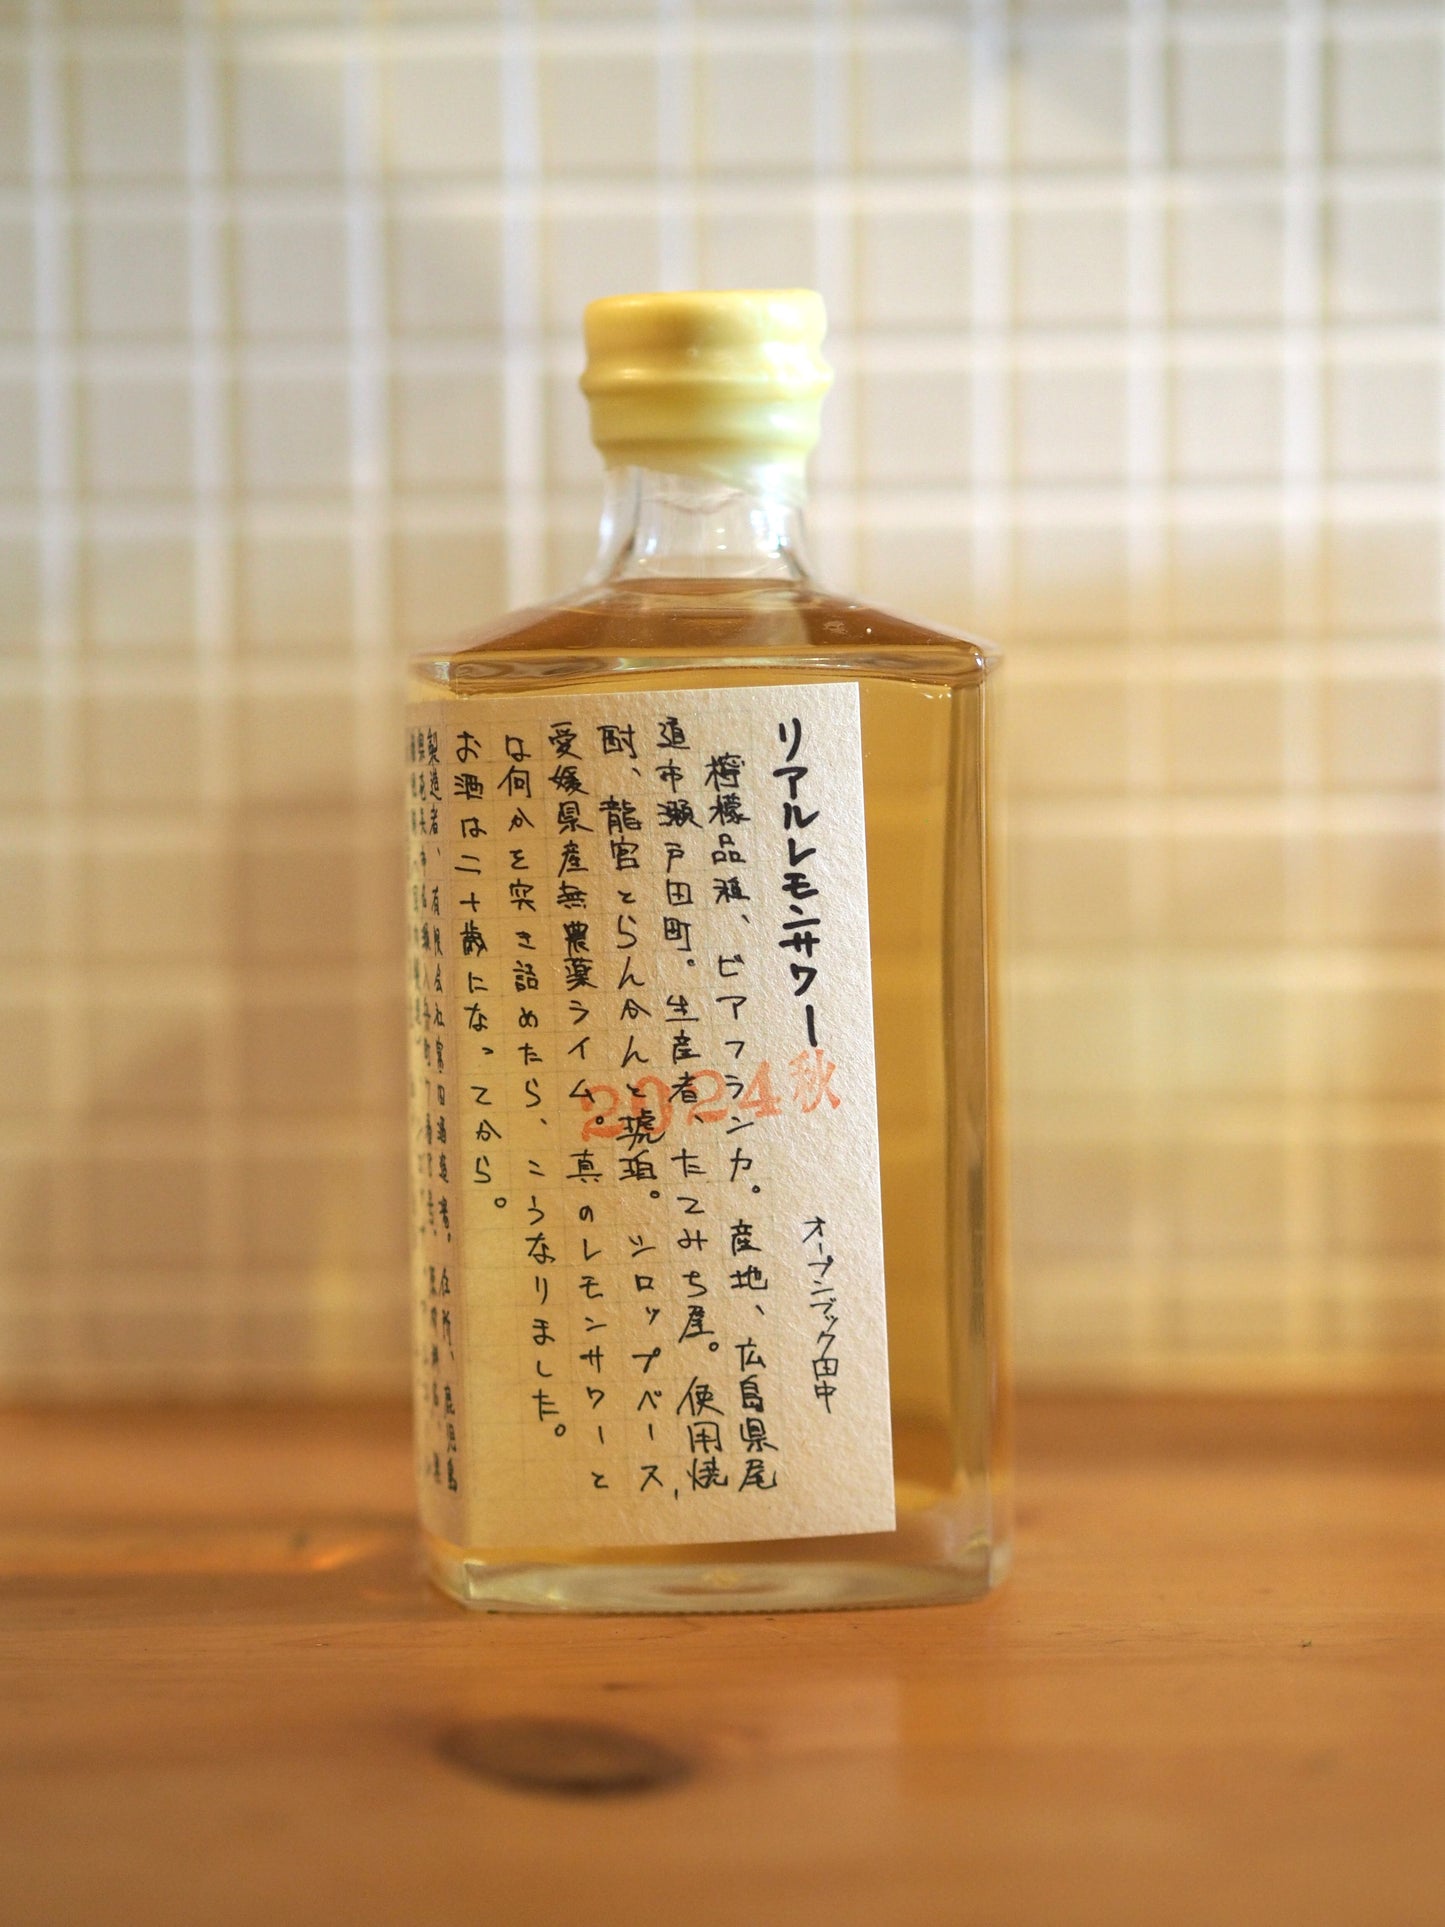 リアルレモンサワー
オープンブック田中
2024秋
檸檬品種、ビアフランカ。産地、広島県尾
道市瀬戸田町。生産者、たてみち屋。使用焼
酎、龍宮とらんかんと琥珀。シロップベース、
愛媛県産無農薬ライム。真のレモンサワーと
は何かを突き詰めたら、こうなりました。
お酒は二十歳になってから。
製造者、有限会社富田酒造場。住所、鹿児島